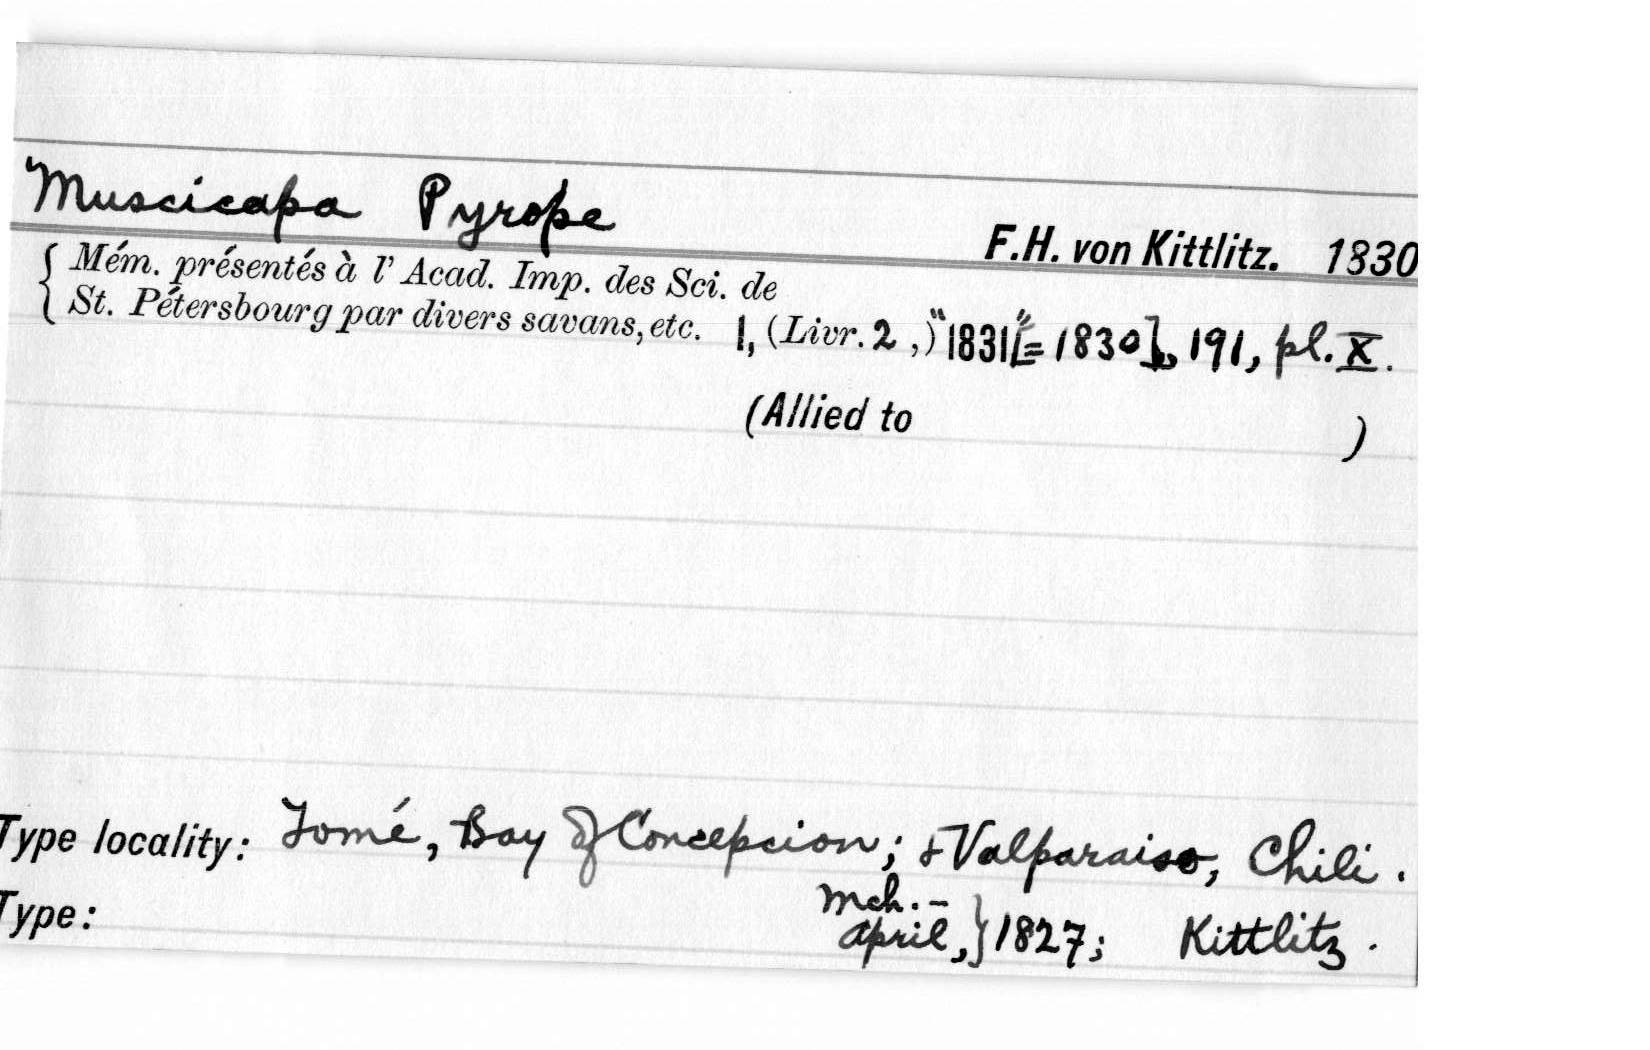 Muscicapa Pyrope
F.H. von Kittlitz. 1830
{ Mém. présentés à l' Acad. Imp. des Sci. de
St. Pétersbourg par divers savans, etc. 1, (Livr. 2 ,) "1831" [= 1830], 191, pl. X.
(Allied to )
Type locality: Tomé, Bay of Concepcion; & Valparaiso, Chili.
Type: Mch. -
April, } 1827; Kittlitz.